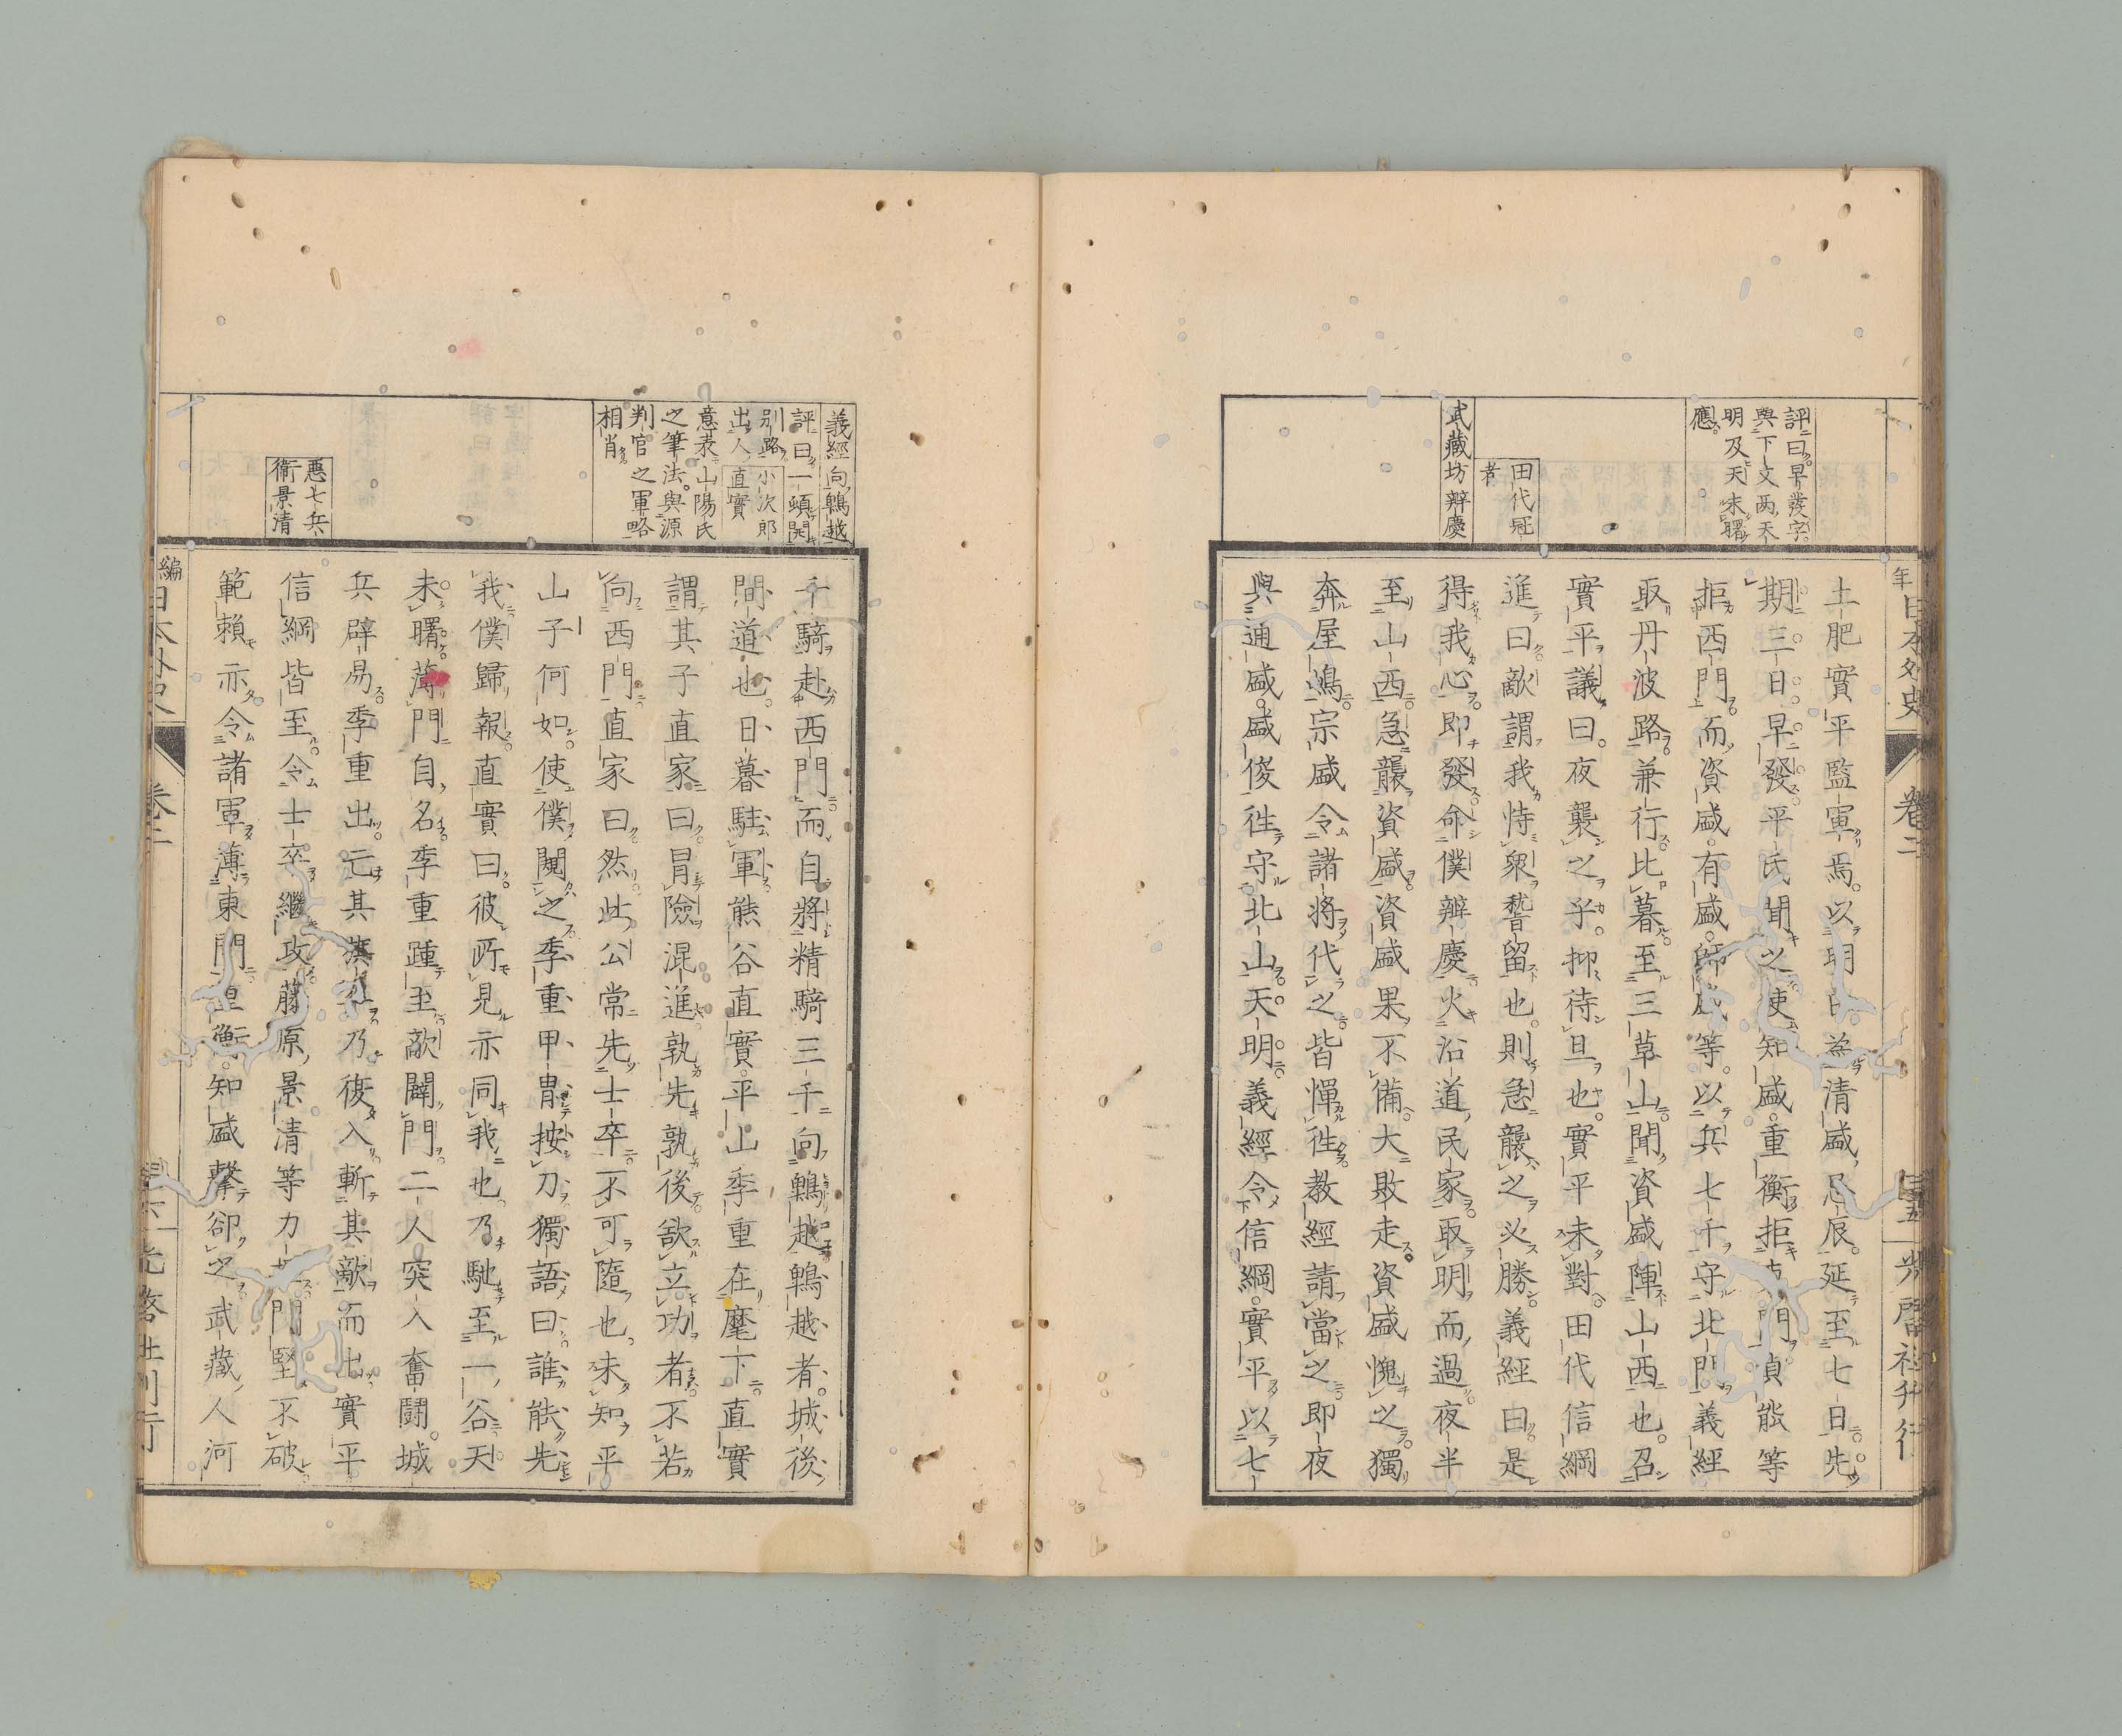 評曰早發字
與下文两天
明及天未曙
應
田代冠
者
武藏坊辨慶
日本外史
卷二
土肥實平監軍焉以明日為清盛忌辰延至七日先
期三日早發平氏聞之使知盛重衡拒東門貞能等
拒西門而資盛有盛師盛等以兵七千守北門義經
取丹波路兼行比暮至三草山聞資盛陣山西也召
實平議曰夜襲之乎抑待旦也實平未對田代信綱
進曰敵謂我恃衆暫留也則急襲之必勝義經曰是
得我心即發命僕辨慶火沿道民家取明而過夜半
至山西急襲資盛資盛果不備大敗走資盛愧之獨
奔屋嶋宗盛令諸將代之皆憚徃教經請當之即夜
與通盛盛俊徃守北山天明義經令信綱實平以七
義經向鵯越
評曰一頓開
別路
出人
意表山陽氏
之筆法與源
判官之軍略
相肖
小次郎
直實
悪七兵
衞景清
千騎赴西門而自將精騎三千向鵯越鵯越者城後
間道也日暮駐軍熊谷直實平山季重在麾下直實
謂其子直家曰冒險混進孰先孰後欲立功者不若
向西門直家曰然此公常先士卒不可隨也未知平
山子何如使僕闚之季重甲冑按刀獨語曰誰能先
我僕歸報直實曰彼所見亦同我也乃馳至一谷天
未曙薄門自名季重踵至敵闢門二人突入奮鬪城
兵辟易季重出亡其旗手乃復入斬其敵而出實平
信綱皆至令士卒繼攻藤原景清等力門堅不破
範賴亦令諸軍薄東門重衡知盛擊卻之武藏人河
編日本外史
卷二
光啓社刊行